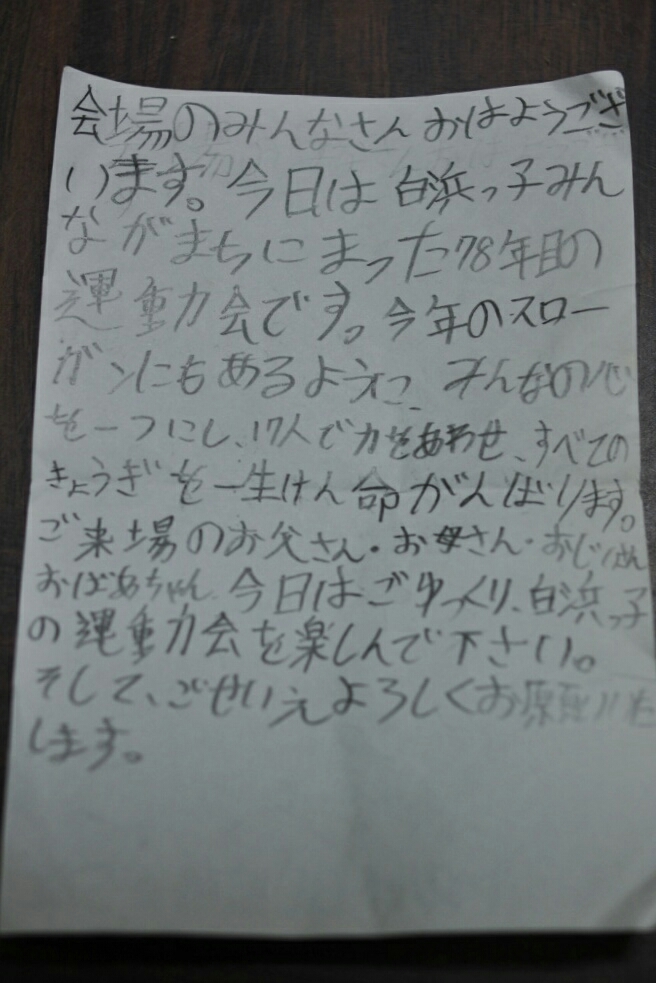 会場のみんなさん おはようござ
います。今日は 白浜っ子みん
ながまちにまった78年目の
運動会です。今年のスロー
ガンにもあるように、みんなの心
を一つにし、17人で力をあわせ、すべての
きょうぎを一生けん命がんばります。
ご来場のお父さん・お母さん・おじいちゃん
おばあちゃん、今日はごゆっくり、白浜っ子
の運動会を楽しんで下さい。
そして、ごせいえんよろしくお願いを
します。